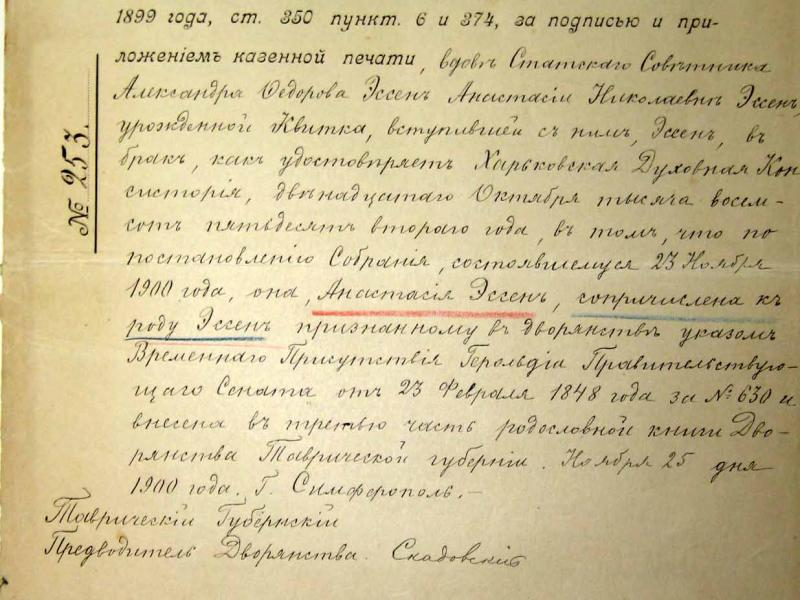 1899 года, ст. 350 пункт. 6 и 374, за подписью и при-
ложеніемъ казенной печати, вдовѣ Статскаго Совѣтника
Александра Ѳедорова Эссенъ Анастасіи Николаевнѣ Эссенъ,
урожденной Квитка, вступившей съ нимъ, Эссенъ, въ
бракъ, какъ удостовѣряетъ Харьковская Духовная Кон
систорія, двѣнадцатаго Октября тысяча восемь-
сотъ пятьдесятъ второго года, въ томъ, что по
постановленію Собранія, состоявшемуся 23 Ноября
1900 года, она, Анастасія Эссенъ, сопричислена къ
роду Эссенъ признанному въ дворянствѣ указомъ
Временнаго Присутствія Герольдіи Правительствую-
щаго Сената отъ 23 Февраля 1848 года за № 630 и
внесена въ третью часть родословной книги Дво-
рянства Таврической губерніи. Ноября 25 дня
1900 года. Г. Симферополь.-
Таврическій Губернскій
Предводитель Дворянства. Скадовскій
№ 253.